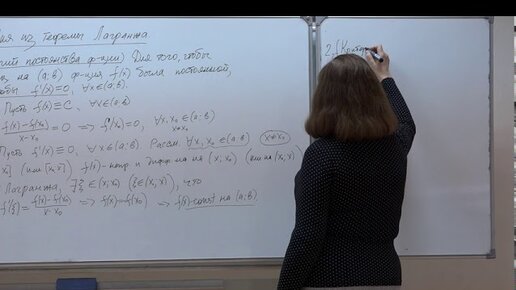 из теоремы Лагранжа.
постоянства ф-ции) Для того, чтобы
на (a;b) ф-ция f(x) была постоянной,
f'(x)=0, ∀x∈(a;b).
Пусть f(x)≡C, ∀x∈(a;b)
f(x)-f(x₀)/x-x₀ =0 => f'(x₀)=0, ∀x,x₀∈(a;b) x≠x₀
Пусть f'(x)≡0, ∀x∈(a;b). Рассм. ∀x,x₀∈(a;b) x≠x₀
x₀] (или [x₀;x]) f(x)-непр и дифф-ма на (x;x₀) (или на (x₀;x))
Лагранжа, ∃ξ∈(x;x₀) (ξ∈(x₀;x)), что
f'(ξ)= f(x)-f(x₀)/x-x₀ => f(x)=f(x₀) => f(x)-const на (a;b).
2.